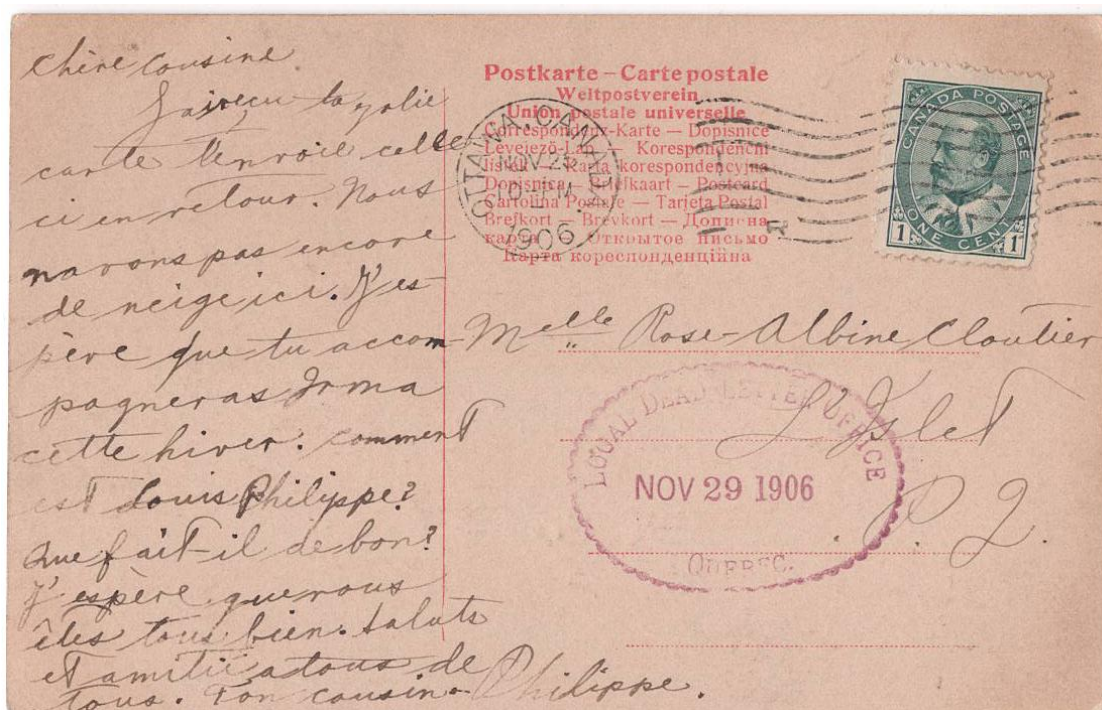 chère cousine
J'ai reçu ta jolie
carte t'envoie celle
ci en retour. Nous
navons pas encore
de neige ici. J'es-
père que tu accom-
pagneras Irma
cette hiver. comment
est Louis Philippe?
Que fait-il de bon?
J'espère que vous
êtes tous bien. saluts
et amitié a tous de
tous. Ton cousin - Philippe.
Postkarte – Carte postale
Weltpostverein
Union postale universelle
Correspondenz-Karte — Dopisnice
Levelező-Lap — Korespondenční
lístek — Karta korespondencyjna
Dopisnica — Briefkaart — Postcard
Cartolina Postale — Tarjeta Postal
Brefkort — Brevkort — Дописна
карта — Открытое письмо
Карта кореспонденційна
OTTAWA, CANADA
NOV 25
1906
CANADA POSTAGE
1 ONE CENT 1
Melle Rose-Albine Cloutier
L'Islet
P. Q.
LOCAL DEAD LETTER OFFICE
NOV 29 1906
QUEBEC.